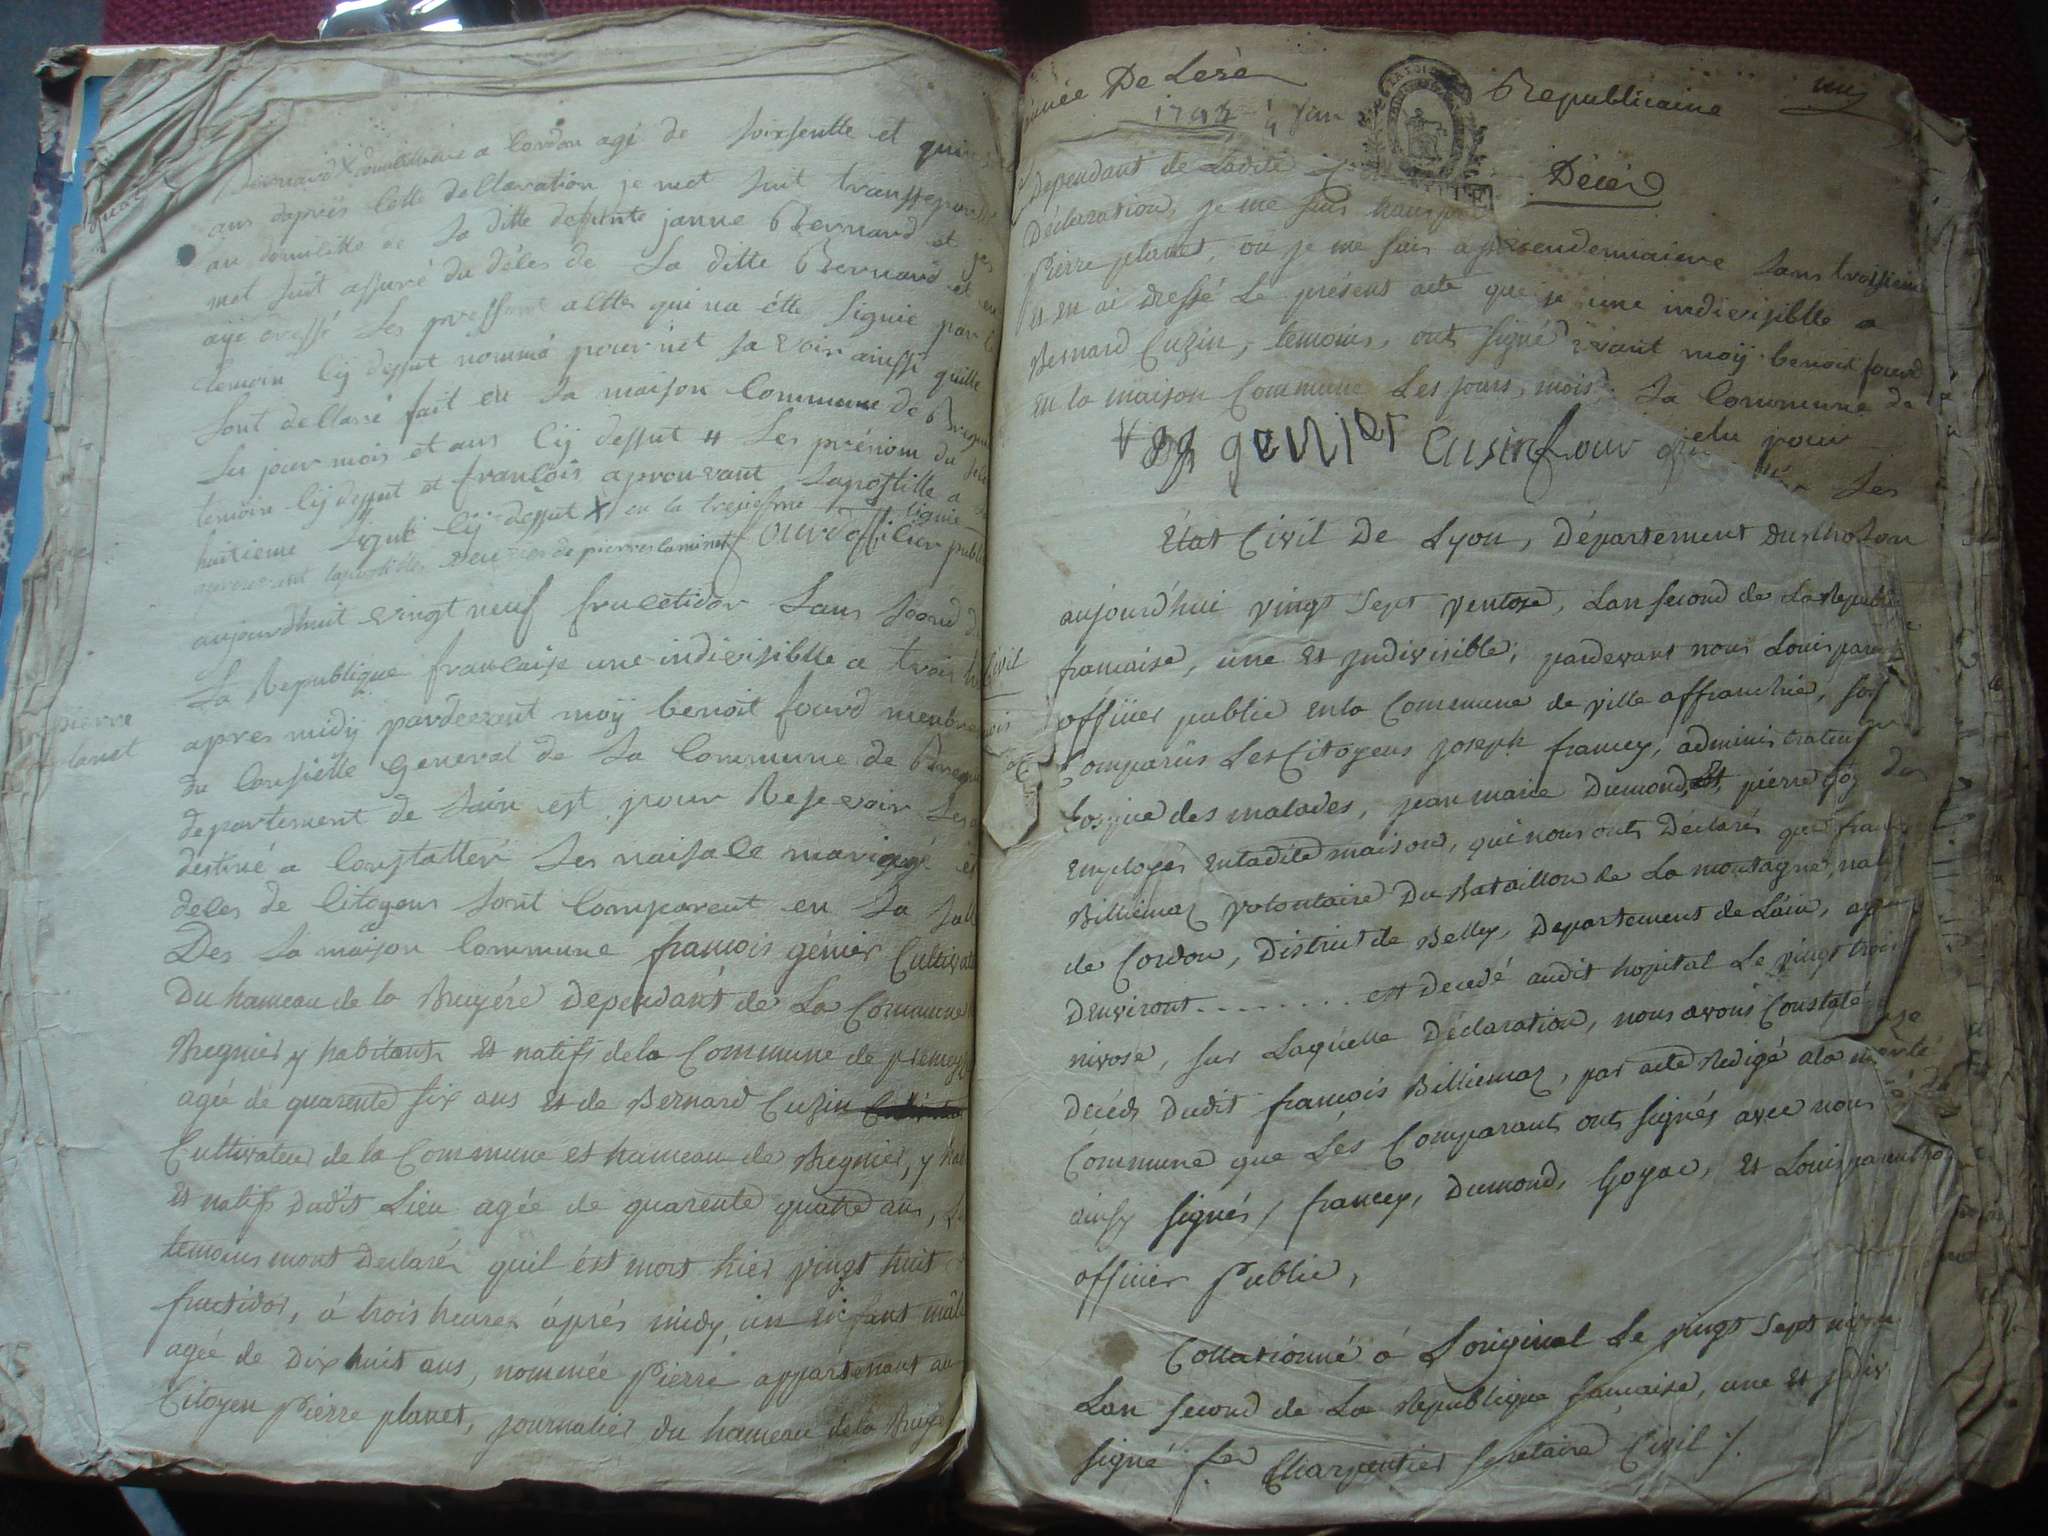 Bernard domicilliere a Cordon agé de soixsentte et quin
ans dapriis cette dellaration je met suit transsepor
au domicille de la ditte defunte janne Bernard et je
met suit assuré du déles de la ditte Bernard et en
aÿe dressé les pressant actte qui na étte signié par
temoin cÿ dessut nommá pour net savoir ainssi quille
sont dellarré fait en la maison Commune de Bregni
les jour mois et ans cÿ dessut les prénom du
temoin cÿ dessut et françois aprouvant lapostille a
huitieme cÿ dessut en la treiesme lignie
fourd officier publi
pierre
planet
aujourdhuit vingt neuf fruectidor lans second d
la Republique francaise une indivisiblle a trois
apres midÿ pardevant moÿ benoit fourd menbre
du Consielle general de la Commune de Bregni
departement de lain est pour Resevoir les
destiné a Constatter les naisace mariagé et
deles de Citoyens sont Comparent en la sall
Des la maison Commune françois génier Cultivat
Du hameau de la Bruyére Dependant de La Commune
Bregnier y habitant et natifs dela Commune de premey
agée de quarente six ans et de Bernard Cuzin
Cultivateur de la Commune et hameau de Bregnier, y ha
et natifs dudit Lieu agée de quarente quatre ans, Le
temoins mont Declaréz quil ést mort hier vingt huit
fructidor, à trois heures áprés midy, un enfant mâle
agée de Dix huit ans, nommée Pierre appartenant au
Citoyen Pierre planet, journalier du hameau dela Bruyé
année De Lerè Republicaine
1793
Décéd
Dependant de Ladite
Déclaration, je me suis transpor
Pierre planet, où je me suis a vendemiaiere lans troissieme
et en ai dressé Le présent acte que je une indivisiblle a
Bernard Cuzin, temoins, ont signé vant moÿ benoit fourd
en la maison Commune Les jours, mois, la Commune de
genier Cusin four elu pour
les
État Civil De Lyon, Département du Rhosne
aujourdhui vingt Sept ventose, Lan second de La Republi
francaise, une et jndivisible; pardevant nous Louis paren
officier public enla Commune de ville affranchie, sont
Comparûs Les Citoyens joseph francey, administrateur
Losgice des malades, jean marie Dumond, et pierre Goy
Employés entadite maison, qui nous ont Déclarés que fran
Billiemaz volontaire Du Bataillon de La montagne, na
de Cordon, District de Belley, Departement de Lain, agé
Denviront - - - - - - - - est decedé audit hopital Le vingt trois
nivose, sur Laquelle Déclaration, nous avons Constaté
Décéds Dudit françois Billiemaz, par acte Redigé ala
Commune que Les Comparants ont signés avec nous
ainsy signés / francey, Dumond, Goyac, et Louis parentho
officier Public,
Collationné à Loriginal Le vingt Sept nivose
Lan second de La Republique francaise, une et jndiv
signé fre Charpentier secretaire Civil /.